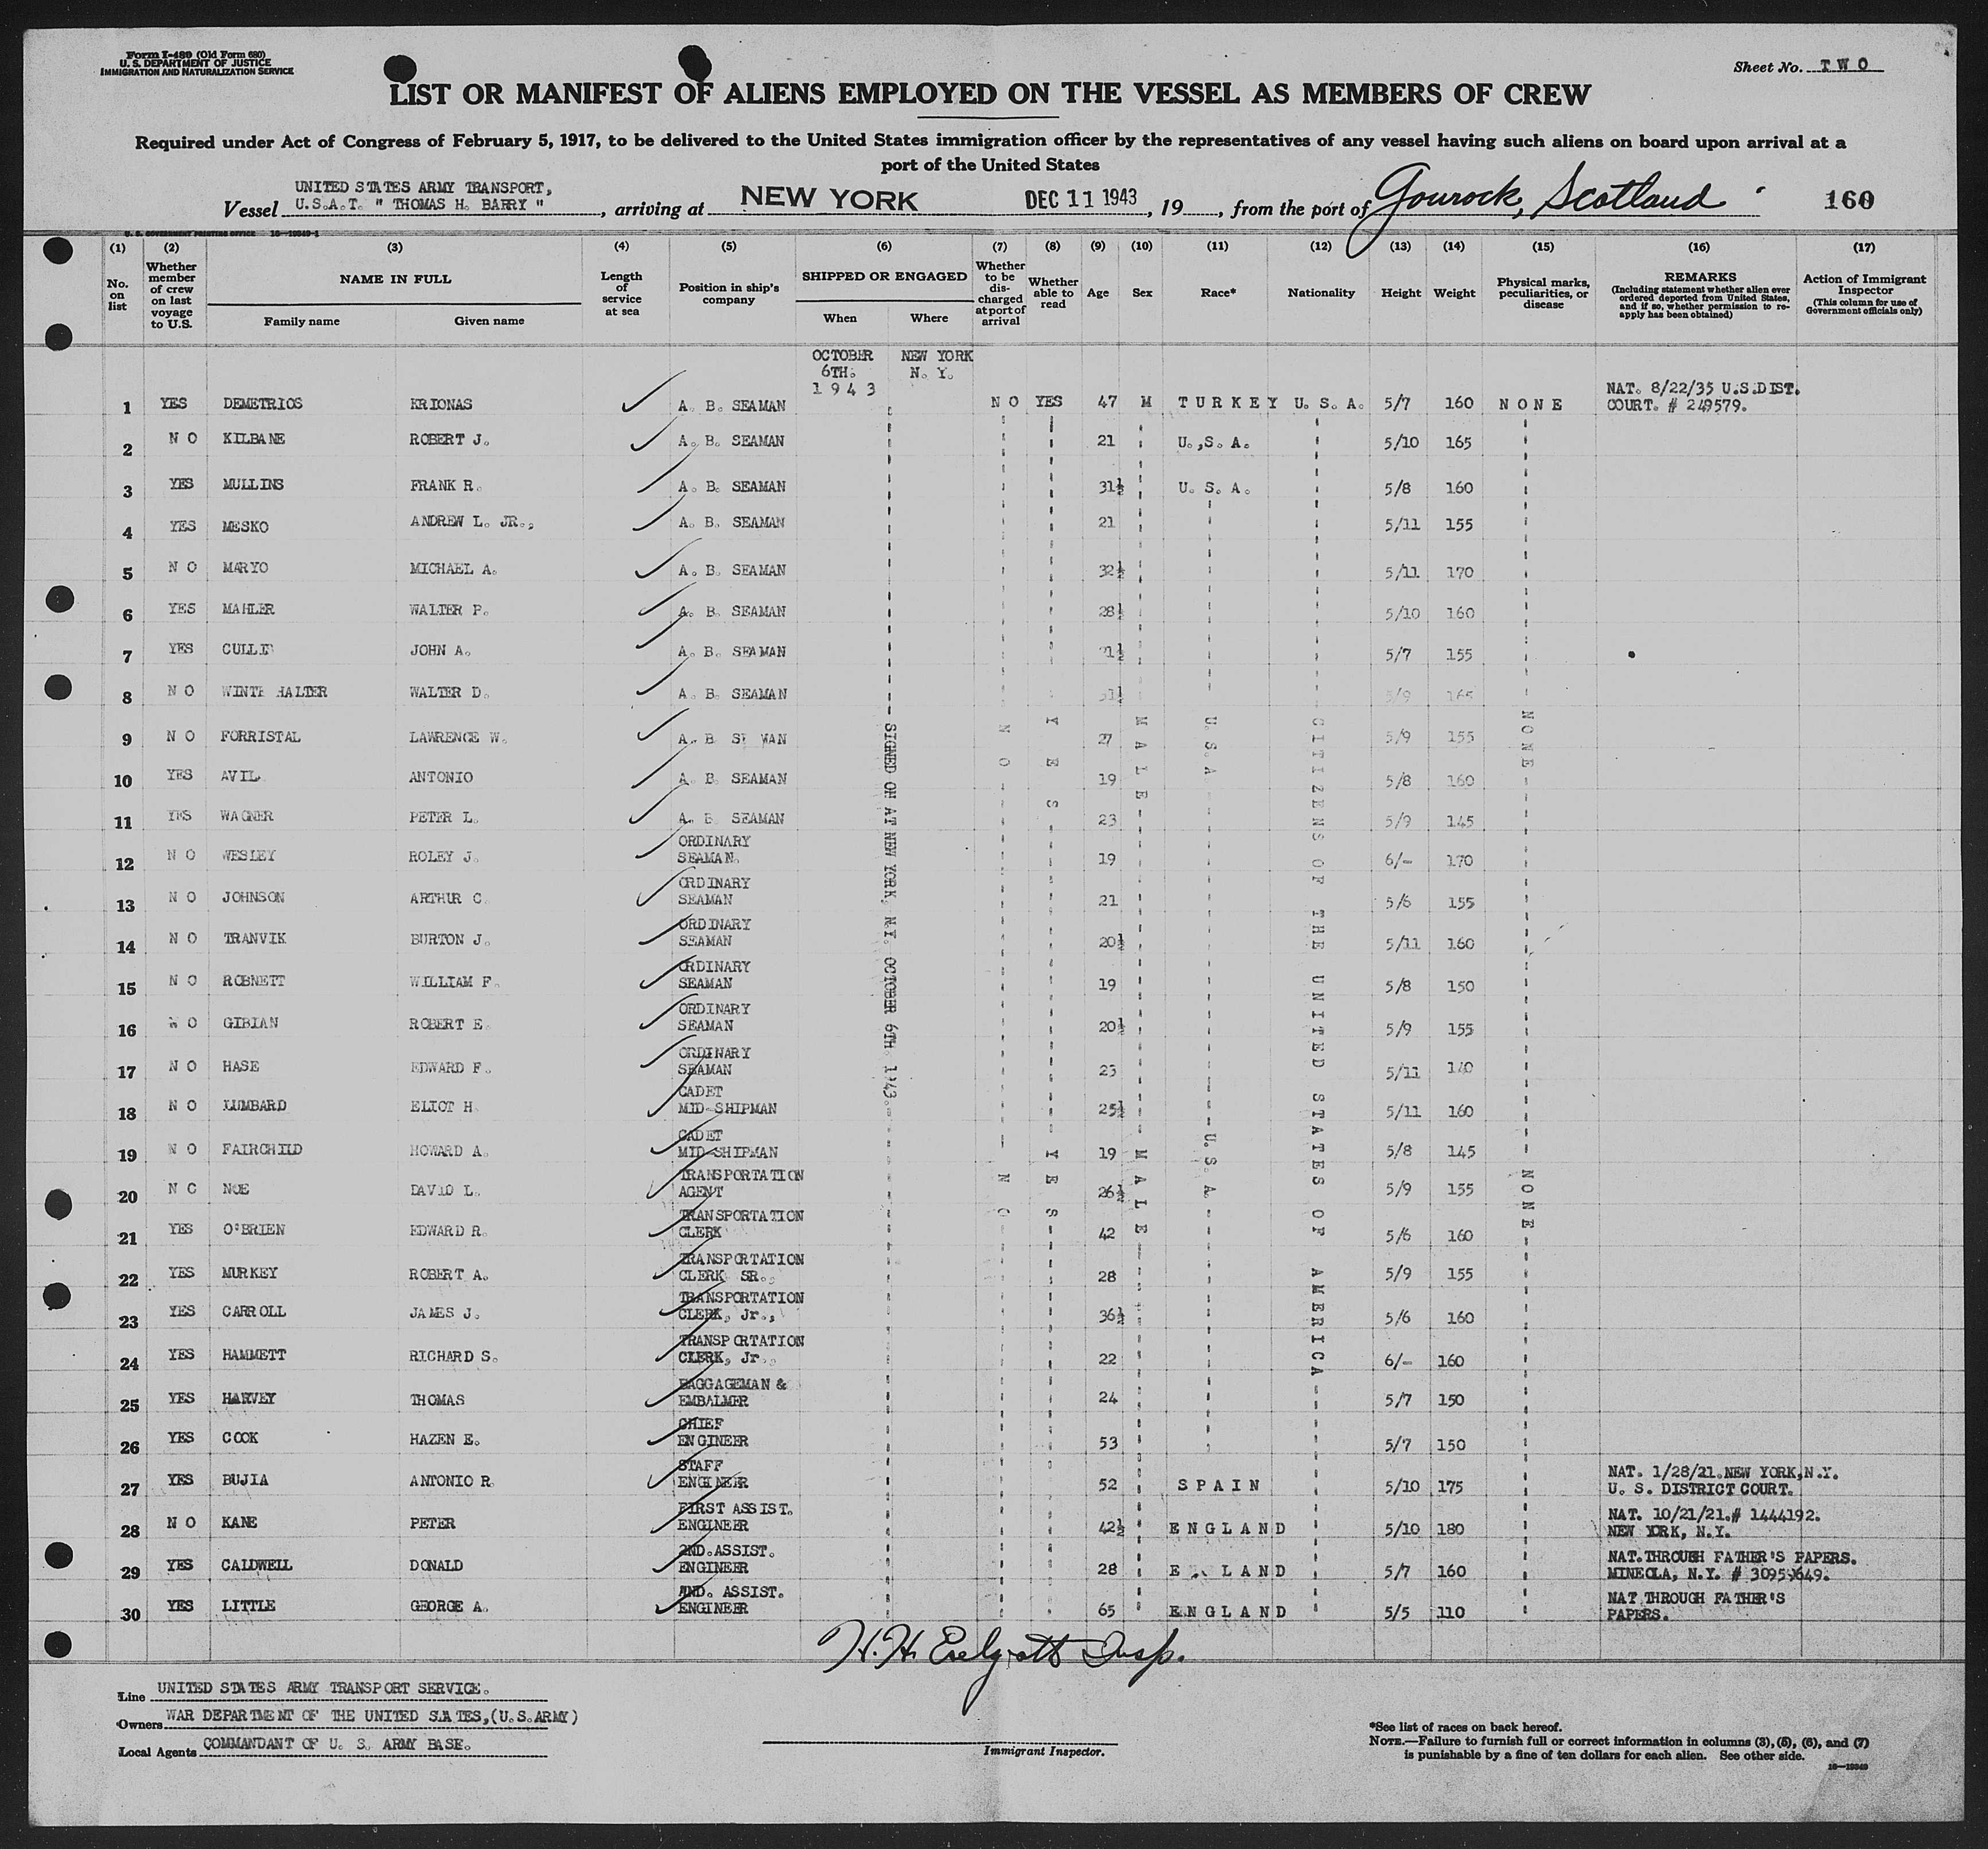 Form I-489 (Old Form 680)
U. S. DEPARTMENT OF JUSTICE
IMMIGRATION AND NATURALIZATION SERVICE
Sheet No. TWO
LIST OR MANIFEST OF ALIENS EMPLOYED ON THE VESSEL AS MEMBERS OF CREW
Required under Act of Congress of February 5, 1917, to be delivered to the United States immigration officer by the representatives of any vessel having such aliens on board upon arrival at a
port of the United States
UNITED STATES ARMY TRANSPORT,
Vessel U.S.A.T. " THOMAS H. BARRY ", arriving at NEW YORK DEC 11 1943, 19, from the port of Gourock, Scotland 160
U. S. GOVERNMENT PRINTING OFFICE 16—19349-1
(1) (2) (3) (4) (5) (6) (7) (8) (9) (10) (11) (12) (13) (14) (15) (16) (17)
No. on list
Whether member of crew on last voyage to U.S.
NAME IN FULL
Family name Given name
Length of service at sea
Position in ship's company
SHIPPED OR ENGAGED
When Where
Whether to be discharged at port of arrival
Whether able to read
Age Sex Race* Nationality Height Weight
Physical marks, peculiarities, or disease
REMARKS
(Including statement whether alien ever ordered deported from United States, and if so, whether permission to re-apply has been obtained)
Action of Immigrant Inspector
(This column for use of Government officials only)
OCTOBER 6TH. 1943 NEW YORK N. Y.
1 YES DEMETRIOS KRIONAS A. B. SEAMAN NO YES 47 M TURKEY U.S.A. 5/7 160 NONE NAT. 8/22/35 U.S.DIST. COURT. # 249579.
2 NO KILBANE ROBERT J. A. B. SEAMAN 21 U.,S.A. 5/10 165
3 YES MULLINS FRANK R. A. B. SEAMAN 31½ U. S. A. 5/8 160
4 YES MESKO ANDREW L. JR., A. B. SEAMAN 21 5/11 155
5 NO MARYO MICHAEL A. A. B. SEAMAN 32½ 5/11 170
6 YES MAHLER WALTER P. A. B. SEAMAN 28½ 5/10 160
7 YES JOHN A. A. B. SEAMAN 5/7 155
8 NO WALTER D. A. B. SEAMAN 5/9 165
9 NO FORRISTAL LAWRENCE W. A. B. 27 5/9 155
10 YES AVIL ANTONIO A. B. SEAMAN 19 5/8 160
11 YES WAGNER PETER L. A. B. SEAMAN 23 5/9 145
12 NO WESLEY ROLEY J. ORDINARY SEAMAN. 19 6/- 170
13 NO JOHNSON ARTHUR C. ORDINARY SEAMAN 21 5/6 155
14 NO TRANVIK BURTON J. ORDINARY SEAMAN 20½ 5/11 160
15 NO ROBNETT WILLIAM F. ORDINARY SEAMAN 19 5/8 150
16 NO GIBIAN ROBERT E. ORDINARY SEAMAN 20½ 5/9 155
17 NO HASE EDWARD F. ORDINARY SEAMAN 23 5/11 140
18 NO LUMBARD ELIOT H. CADET MID-SHIPMAN 25½ 5/11 160
19 NO FAIRCHILD HOWARD A. CADET MID-SHIPMAN 19 5/8 145
20 NO NOE DAVID L. TRANSPORTATION AGENT 26½ 5/9 155
21 YES O'BRIEN EDWARD R. TRANSPORTATION CLERK 42 5/6 160
22 YES MURKEY ROBERT A. TRANSPORTATION CLERK SR., 28 5/9 155
23 YES CARROLL JAMES J. TRANSPORTATION CLERK, Jr., 36½ 5/6 160
24 YES HAMMETT RICHARD S. TRANSPORTATION CLERK, Jr., 22 6/- 160
25 YES HARVEY THOMAS BAGGAGEMAN & EMBALMER 24 5/7 150
26 YES COOK HAZEN E. CHIEF ENGINEER 53 5/7 150
27 YES BUJIA ANTONIO R. STAFF ENGINEER 52 SPAIN 5/10 175 NAT. 1/28/21.NEW YORK,N.Y. U. S. DISTRICT COURT.
28 NO KANE PETER FIRST ASSIST. ENGINEER 42½ ENGLAND 5/10 180 NAT. 10/21/21.# 1444192. NEW YORK, N.Y.
29 YES CALDWELL DONALD 2ND.ASSIST. ENGINEER 28 5/7 160 NAT.THROUGH FATHER'S PAPERS. MINEOLA, N.Y.
30 YES LITTLE GEORGE A. ASSIST. ENGINEER 65 ENGLAND 5/5 110 NAT THROUGH FATHER'S PAPERS.
SIGNED ON AT NEW YORK, N.Y. OCTOBER 6TH. 1943.
NO
NO
YES
YES
MALE
MALE
U.S.A
U.S.A.
CITIZENS OF THE UNITED STATES OF AMERICA
NONE
NONE
H. H. Insp.
Line UNITED STATES ARMY TRANSPORT SERVICE.
Owners WAR DEPARTMENT OF THE UNITED SATES,(U.S.ARMY)
Local Agents COMMANDANT OF U. S. ARMY BASE.
Immigrant Inspector.
*See list of races on back hereof.
NOTE.—Failure to furnish full or correct information in columns (3), (5), (6), and (7)
is punishable by a fine of ten dollars for each alien. See other side.
16—19349